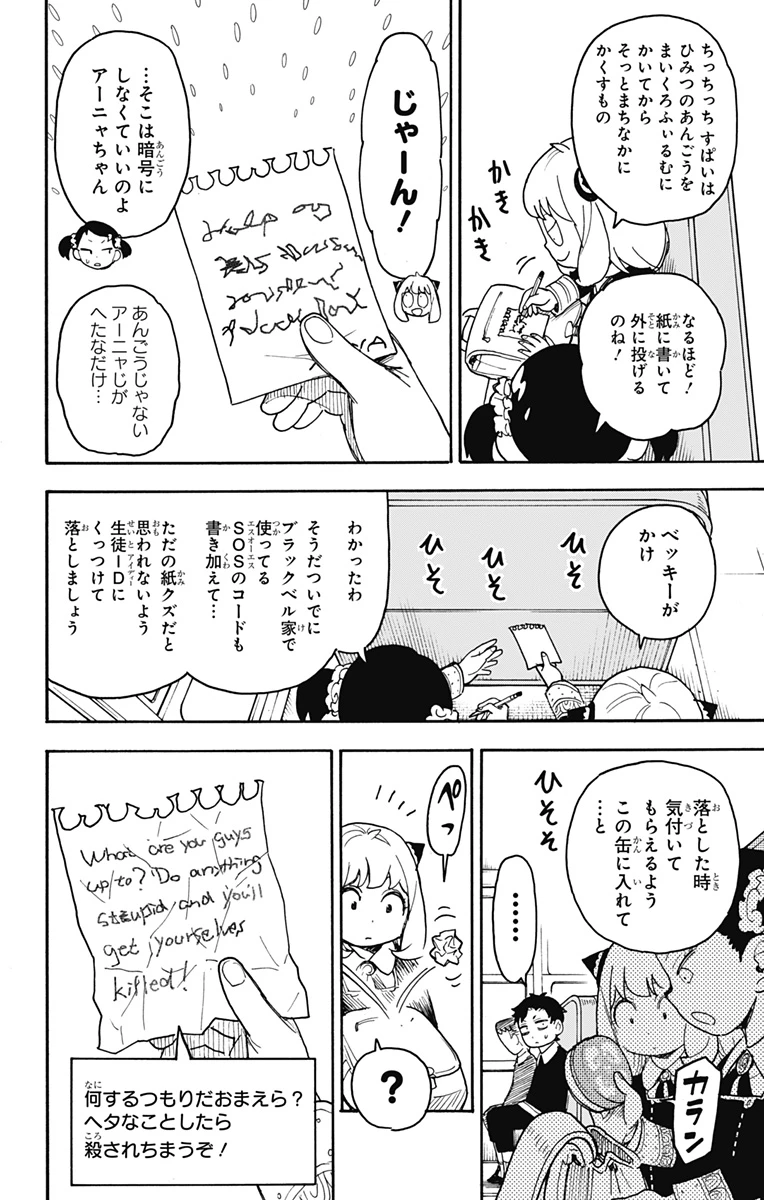 ちっちっ すぱいは
ひみつのあんごうを
まいくろふぃるむに
かいてから
そっとまちなかに
かくすもの
かき
かき
なるほど！
紙に書いて
外に投げる
のね！
じゃーん！
…そこは暗号に
しなくていいのよ
アーニャちゃん
あんごうじゃない
アーニャじが
へたなだけ…
ベッキーが
かけ
ヒソ
ヒソ
わかったわ
そうだついでに
ブラックベル家で
使ってる
SOSのコードも
書き加えて…
ただの紙クズだと
思われないよう
生徒IDに
くっつけて
落としましょう
落とした時
気付いて
もらえるよう
この缶に入れて
…と
ヒソソ
カラン
……
ペっ
？
What are you guys
up to? Do anything
stupid and you'll
get yourselves
killed!
何するつもりだおまえら？
ヘタなことしたら
殺されちまうぞ！